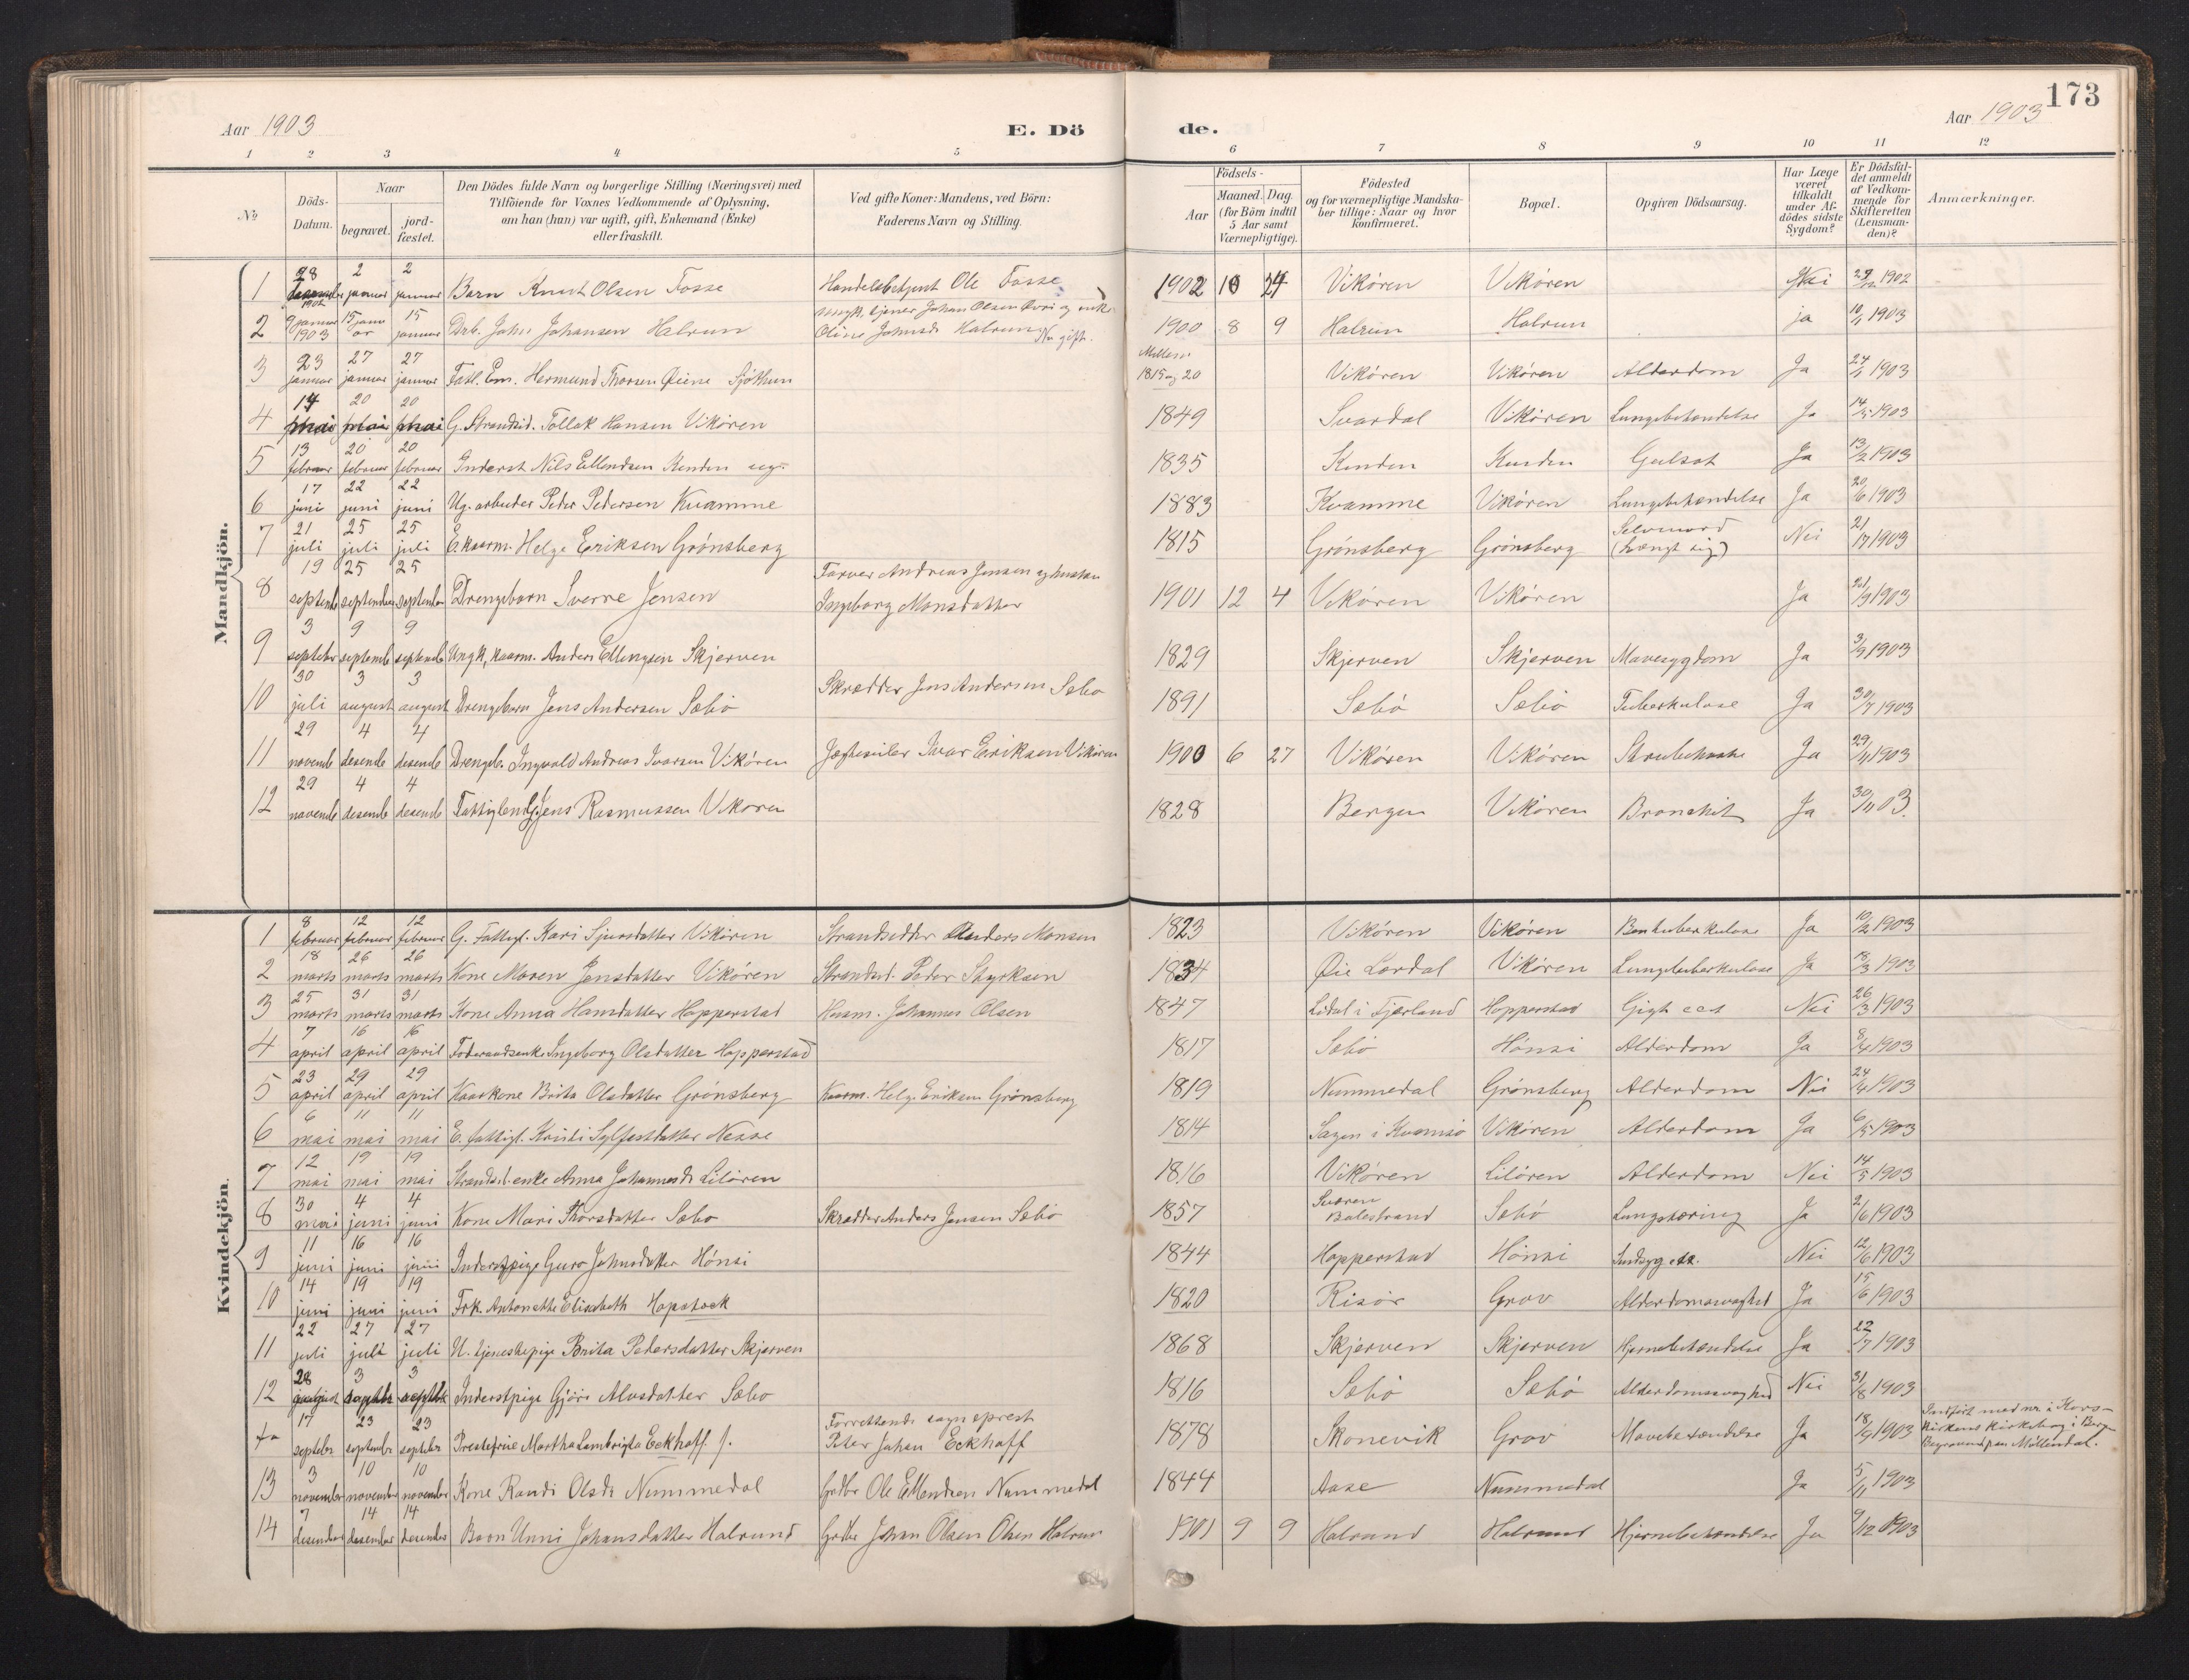 173
Aar 1903
E. Dö
de.
Aar 1903
1 2 3 4 5 6 7 8 9 10 11 12
No
Döds-Datum.
Naar
begravet.
jord-fæstet.
Den Dödes fulde Navn og borgerlige Stilling (Næringsvei) med
Tilföiende for Voxnes Vedkommende af Oplysning,
om han (hun) var ugift, gift, Enkemand (Enke)
eller fraskilt.
Ved gifte Koner: Mandens, ved Börn:
Faderens Navn og Stilling.
Födsels-
Aar
Maaned. Dag.
(for Börn indtil
5 Aar samt
Værnepligtige).
Födested
og for værnepligtige Mandska-
ber tillige: Naar og hvor
konfirmeret.
Bopæl.
Opgiven Dödsaarsag.
Har Læge
været
tilkaldt
under Af-
dödes sidste
Sygdom?
Er Dödsfal-
det anmeldt
af Vedkom-
mende for
Skifteretten
(Lensman-
den)?
Anmærkninger.
Mandkjön.
1 28 1902 2 januar 2 januar Barn Knut Olsen Fosse Handelsbetjent Ole Fosse 1902 10 24 Vikören Vikören Nei 29/12 1902
2 9 januar 1903 15 januar 15 januar Drb. Johan Johansen Halrun Johan Olsen og enke Oline Johnsd. Halrun Nu gift. 1900 8 9 Halrun Halrun ja 10/1 1903
3 23 januar 27 januar 27 januar Fatl. Em. Hermund Thorsen Øiene Sjöthun Mellem 1815 og 20 Vikören Vikören Alderdom Ja 24/1 1903
4 14 mai 20 mai 20 mai G. Strandsid. Tollak Hansen Vikören 1849 Svardal Vikören Lungebetændelse Ja 14/5 1903
5 13 februar 20 februar 20 februar Inderst Nils Ellendsen Kinden ug. 1835 Kinden Kinden Gulsot Ja 13/2 1903
6 17 juni 22 juni 22 juni Ug. arbeider Peder Pedersen Kvamme 1883 Kvamme Vikören Lungebetændelse Ja 20/6 1903
7 21 juli 25 juli 25 juli E. kaarm. Helge Eriksen Grönsberg 1815 Grönsberg Grönsberg Selvmord (hængt sig) Nei 21/7 1903
8 19 septemb 25 september 25 september Drengebarn Sverre Jensen Farver Andreas Jensen og hustru Ingeborg Monsdatter 1901 12 4 Vikören Vikören Ja 21/9 1903
9 3 septebr 9 septemb 9 septemb Ungk, kaarm. Anders Ellingsen Skjerven 1829 Skjerven Skjerven Mavesygdom Ja 3/9 1903
10 30 juli 3 august 3 august Drengebarn Jens Andersen Sæbö Skrædder Jens Andersen Sæbo 1891 Sæbö Sæbö Tuberkulose Ja 30/7 1903
11 29 novemb 4 desemb 4 desemb Drengeb. Ingvald Andreas Ivarsen Vikören Jægteseiler Ivar Eriksen Vikören 1900 6 27 Vikören Vikören Strubehoste Ja 29/11 1903
12 29 novemb 4 desemb 4 desemb Fattiglem Jens Rasmussen Vikören 1828 Bergen Vikören Bronchit Ja 30/11 03.
Kvindekjön.
1 8 februar 12 februar 12 februar G. Fattigl. Kari Sjursdatter Vikören Strandsidder Anders Monsen 1823 Vikören Vikören Bentuberkulose Ja 10/2 1903
2 18 marts 26 marts 26 marts Kone Maren Jensdatter Vikören Strandsid. Peder Styrksen 1834 Øie Lærdal Vikören Lungetuberkulose Ja 18/3 1903
3 25 marts 31 marts 31 marts Kone Anna Hansdatter Hopperstad Husm. Johannes Olsen 1847 Lidal i Fjærland Hopperstad Gigt ect Nei 26/3 1903
4 7 april 16 april 16 april Föderaadsenke Ingeborg Olsdatter Hopperstad 1817 Sæbö Hönsi Alderdom Ja 8/4 1903
5 23 april 29 april 29 april Kaarkone Brita Olsdatter Grönsberg Kaarm. Helge Eriksen Grönsberg 1819 Nummedal Grönsberg Alderdom Nei 24/4 1903
6 6 mai 11 mai 11 mai E. fattigl. Kristi Sylfestdatter Nesse 1814 Sagen i Kvamsö Vikören Alderdom Ja 6/5 1903
7 12 mai 19 mai 19 mai Strandsid. enke Anna Johannesd. Lilören 1816 Vikören Lilören Alderdom Nei 14/5 1903
8 30 mai 4 juni 4 juni Kone Mari Thorsdatter Sæbo Skrædder Anders Jensen Sæbö 1857 Sværen Balestrand Sæbö Lungetæring Ja 2/6 1903
9 11 juni 16 juni 16 juni Inderstpige Guro Johnsdatter Hönsi 1844 Hopperstad Hönsi Sindsyg etc. Nei 12/6 1903
10 14 juni 19 juni 19 juni Frk. Antonette Elisabeth Hopstock 1820 Risör Grov Alderdomssvaghed Ja 15/6 1903
11 22 juli 27 juli 27 juli U. tjenestepige Brita Pedersdatter Skjerven 1868 Skjerven Skjerven Hjernebetændelse Ja 22/7 1903
12 28 august 3 septbr 3 septbr Inderstpige Gjöri Alvsdatter Sæbo 1816 Sæbö Sæbö Alderdomssvaghed Nei 31/8 1903
17 septebr 23 septembr 23 septebr Prestefrue Martha Lambrigta Eckhoff f. Forrettende sogneprest Peter Johan Eckhoff 1878 Skonevik Grov Mavebetændelse Ja 18/9 1903 Indfört med nr. i Kors-
kirkens kirkebog i Berg
Begravet paa Möllendal.
13 3 november 10 november 10 november Kone Randi Olsd. Nummedal Gbr Ole Ellendsen Nummedal 1844 Aase Nummedal Ja 5/11 1903
14 7 desember 14 desember 14 desember Barn Unni Johansdatter Halrund Gbr Johan Olsen Olsen Halrun 1901 9 9 Halrund Halrund Hjernebetændelse Ja 9/12 1903